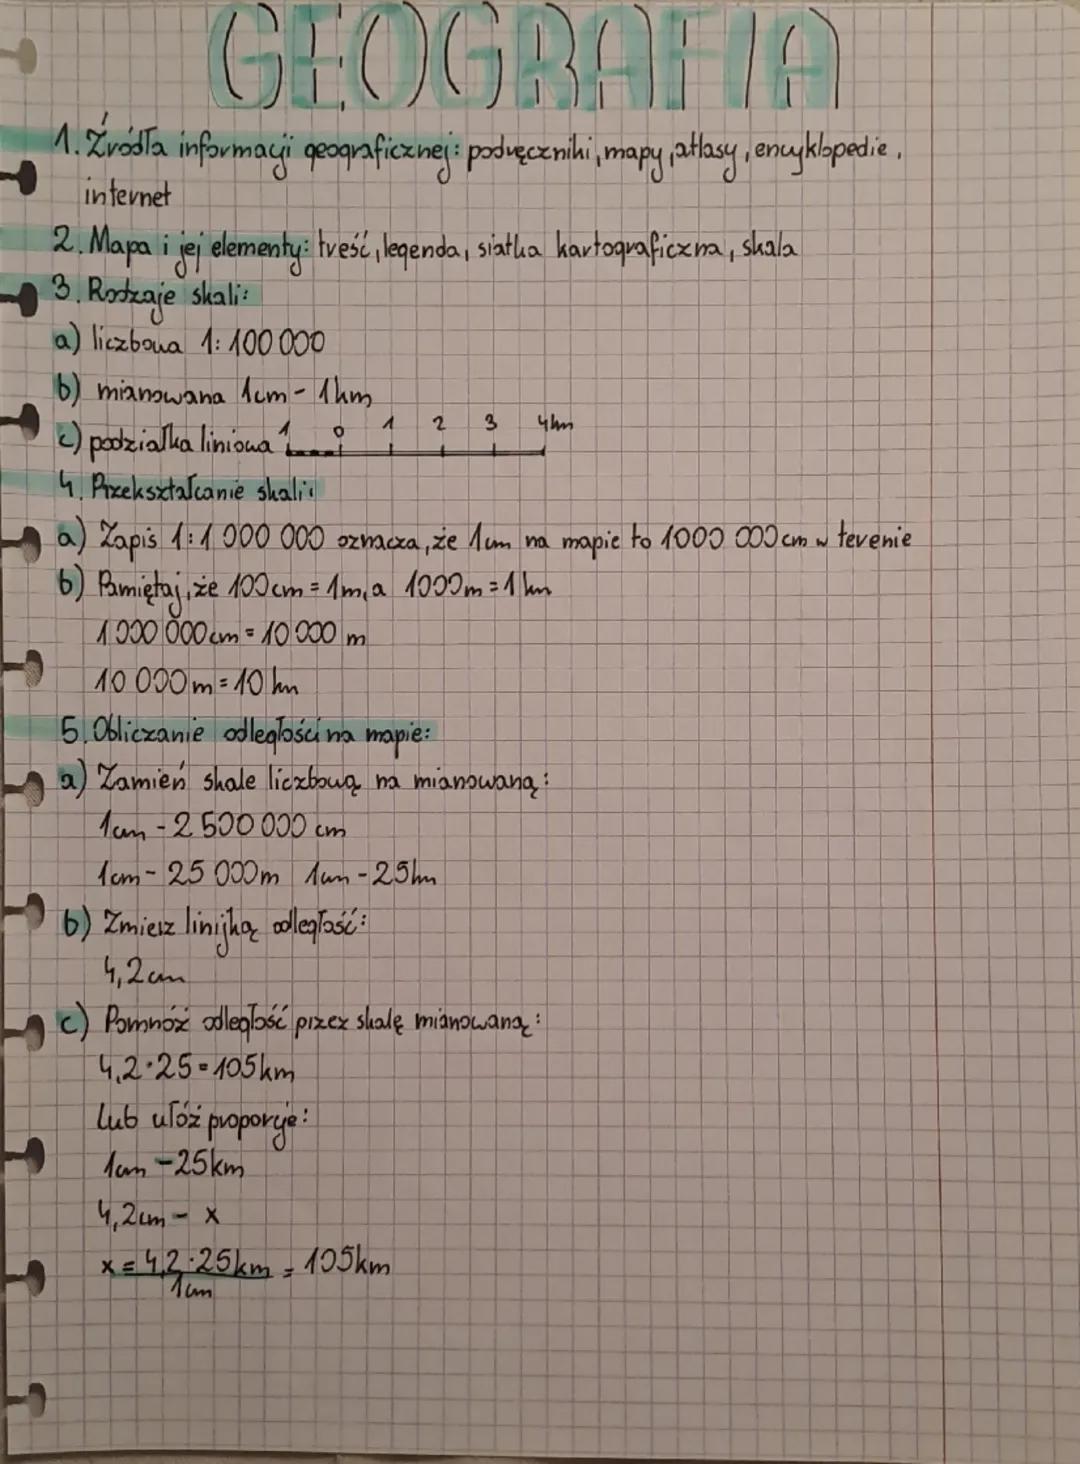 GEOGRAFIA
1. Źródła informacji geograficznej: podręczniki, mapy, atlasy, encyklopedie,
internet
2. Mapa i jej elementy: treść, legenda, siatka kartograficzna, skala
3. Rodzaje skali:
a) liczbowa 1:100 000
b) mianowana 1cm - 1km
c) podziałka liniowa 1 0 1 2 3 4km
4. Przekształcanie skali:
a) Zapis 1:1 000 000 oznacza, że 1cm na mapie to 1000 000cm w terenie
b) Pamiętaj, że 100cm = 1m, a 1000m = 1km
1 000 000cm = 10 000 m
10 000m = 10 km
5. Obliczanie odległości na mapie:
a) Zamień skale liczbową na mianowaną:
1cm - 2 500 000 cm
1cm - 25 000m 1cm - 25km
b) Zmierz linijką odległość:
4,2cm
c) Pomnóż odległość przez skalę mianowaną:
4,2 · 25 = 105km
lub ułóż proporcje:
1cm - 25km
4,2cm - x
x = 4,2 · 25km = 105km
1cm